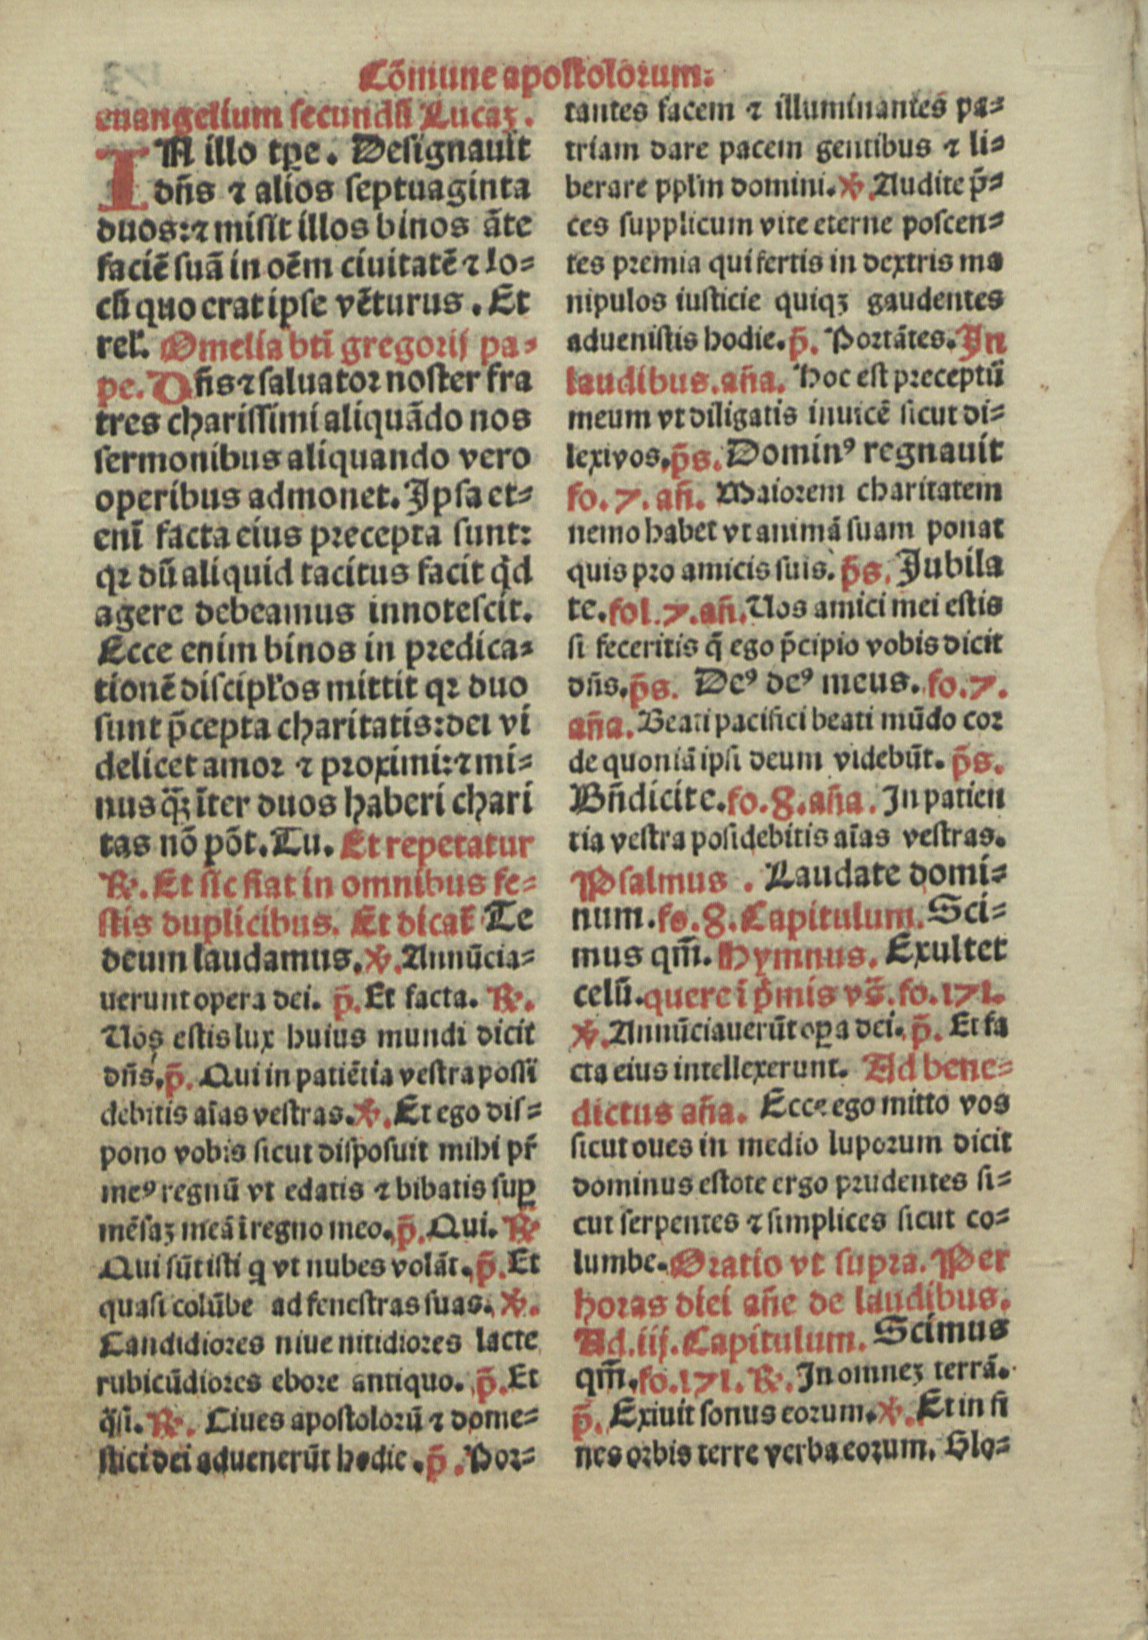 Cōmune apostolorum:
euangelium secundū Lucaʒ.
IN illo tꝑe. Designauit
dn̄s ⁊ alios septuaginta
duos:⁊ misit illos binos āte
faciē suā in oēm ciuitatē ⁊ lo-
cū quo erat ipse vēturus. Et
rel̓. Omelia bt̄i gregorij pa-
pe. Dn̄s ⁊ saluator noster fra
tres charissimi aliquādo nos
sermonibus aliquando vero
operibus admonet. Ipsa et-
eni facta eius precepta sunt:
qꝛ dū aliquid tacitus facit qd̓
agere debeamus innotescit.
Ecce enim binos in predica-
tionē discipl̓os mittit qꝛ duo
sunt p̄cepta charitatis: dei vi
delicet amor ⁊ proximi:⁊ mi-
nus qͣʒ īter duos haberi chari
tas nō pōt. Tu. Et repetatur
℟. Et sic fiat in omnibus fe-
stis duplicibus. Et dicať Te
deum laudamus. ℣. Annūcia-
uerunt opera dei. p̄. Et facta. ℟.
Uos estis lux huius mundi dicit
dn̄s. p̄. Qui in patiētia vestra possi
debitis aīas vestras. ℣. Et ego dis-
pono vobis sicut disposuit mihi pr̄
meꝰ regnū vt edatis ⁊ bibatis suꝑ
mēsaʒ meā ī regno meo. p̄. Qui. ℟
Qui sūt isti q vt nubes volāt. p̄. Et
quasi colūbe ad fenestras suas. ℣.
Candidiores niue nitidiores lacte
rubicūdiores ebore antiquo. p̄. Et
q̄si. ℟. Ciues apostolorū ⁊ dome-
stici dei aduenerūt hodie. p̄. Por-
tantes facem ⁊ illuminantes pa-
triam dare pacem gentibus ⁊ li-
berare ppl̓m domini. ℣. Audite p̄-
ces supplicum vite eterne poscen-
tes premia qui fertis in dextris ma
nipulos iusticie quiqʒ gaudentes
aduenistis hodie. p̄. Portātes. In
laudibus. an̄a. Hoc est preceptū
meum vt diligatis inuicē sicut di-
lexi vos. p̄s. Dominꝰ regnauit
fo. 7. an̄. Maiorem charitatem
nemo habet vt animā suam ponat
quis pro amicis suis. p̄s. Jubila
te. fol. 7. an̄. Uos amici mei estis
si feceritis q̄ ego p̄cipio vobis dicit
dn̄s. p̄s. Deꝰ deꝰ meus. fo. 7.
an̄a. Beati pacifici beati mūdo cor
de quoniā ipsi deum videbūt. p̄s.
Bn̄dicite. fo. 8. an̄a. In patien
tia vestra posidebitis aīas vestras.
Psalmus . Laudate domi-
num. fo. 8. Capitulum. Sci-
mus qm̄. Hymnus. Exultet
celū. quere ī p̓mis vs̄. fo. 171.
℣. Annūciauerūt oꝑa dei. p̄. Et fa
cta eius intellexerunt. Ad bene-
dictus an̄a. Ecce ego mitto vos
sicut oues in medio luporum dicit
dominus estote ergo prudentes si-
cut serpentes ⁊ simplices sicut co-
lumbe. Oratio vt supra. Per
horas diei an̄e de laudibus.
Ad .iij. Capitulum. Scimus
qm̄. fo. 171. ℟. In omneʒ terrā.
p̄. Exiuit sonus eorum. ℣. Et in fi
nes orbis terre verba eorum. Glo-